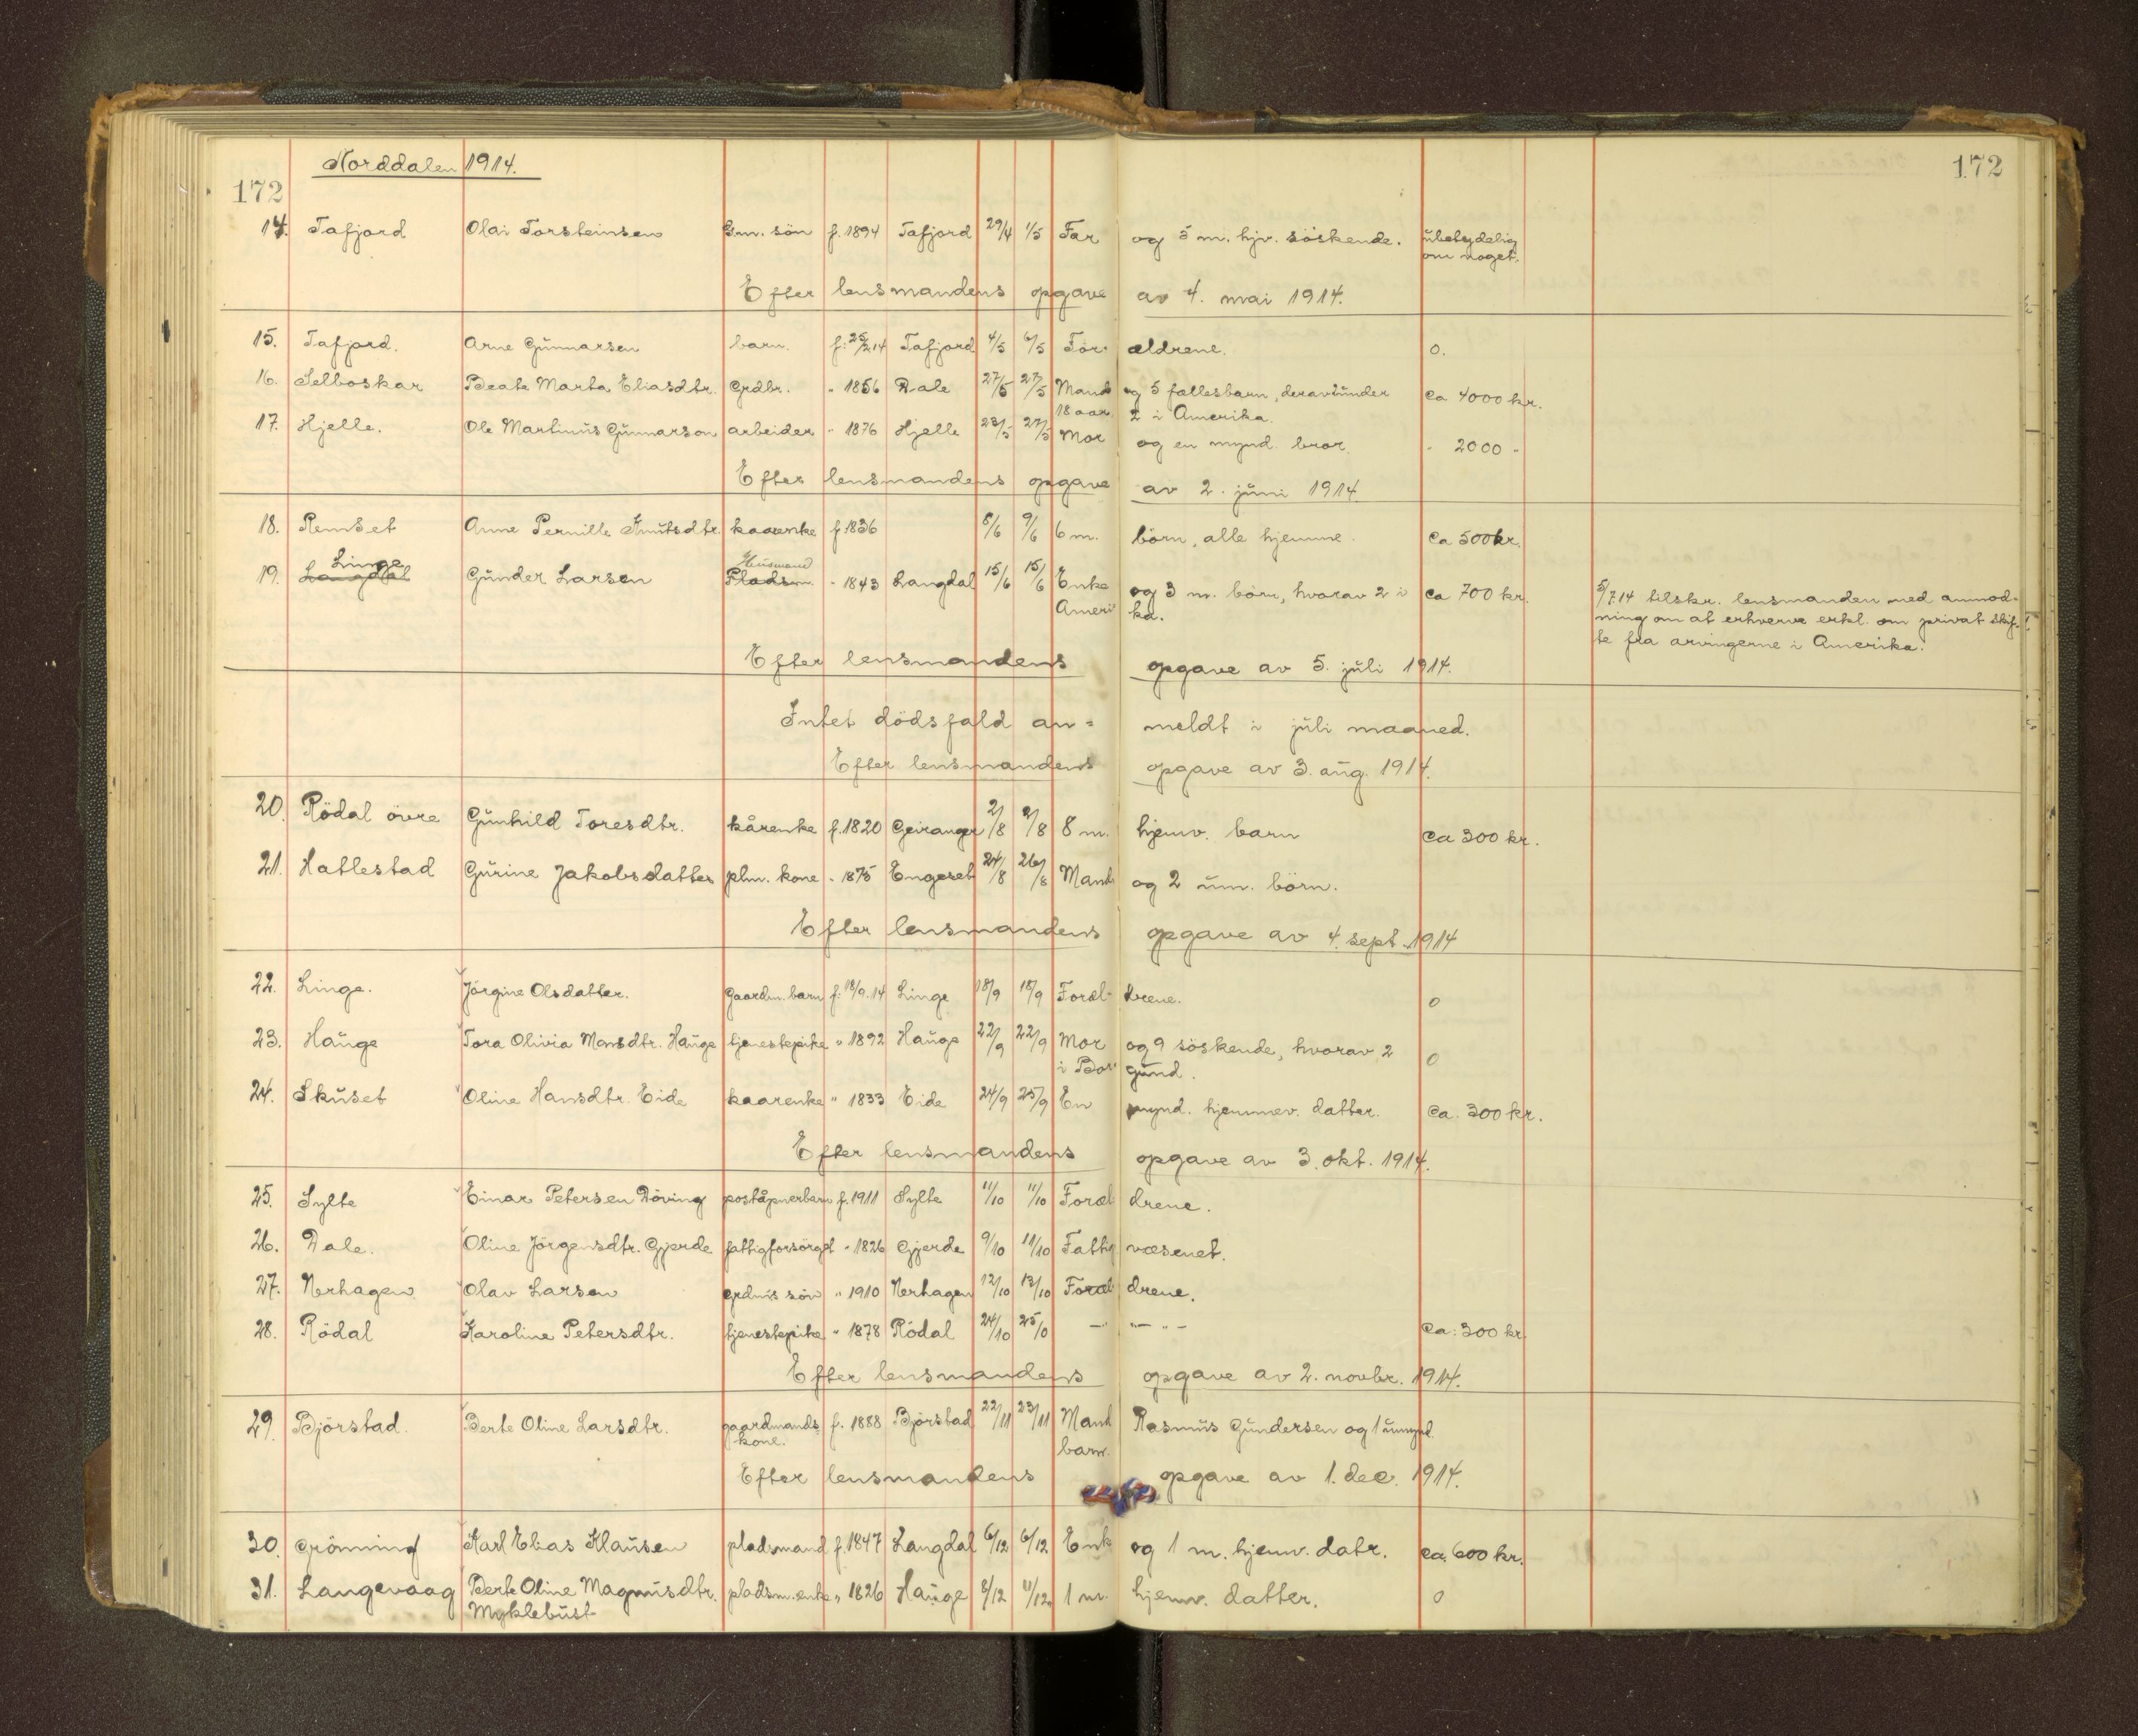 Norddalen 1914.
172
172
14. Tafjord Olai Torsteinsen G.m. sön f. 1894 Tafjord 29/4 1/5 Far og 5 m. hjv. söskende. ubetydelig
om noget.
Efter lensmandens opgave av 4. mai 1914.
15. Tafjord. Arne Gunnarsen barn. f. 25/2 14 Tafjord 4/5 6/5 For- ældrene. 0.
16. Selboskar Beate Marta Eliasdtr. Grdbr. " 1856 Dale 27/5 27/5 Mand og 5 fællesbarn, deravünder ca 4000 kr.
18 aar 2 i Amerika.
17. Hjelle. Ole Martinüs Günnarson arbeider " 1876 Hjelle 23/5 27/5 Mor og en mynd. bror. " 2000 "
Efter lensmandens opgave av 2. jüni 1914.
18. Remset Anne Pernille Knütsdtr. kaarenke f. 1836 8/6 9/6 6 m. börn, alle hjemme. Ca 500 kr.
Linge Hüsmand
19. Langdal Günder Larsen Pladsm. " 1843 Langdal 15/6 15/6 Enke og 3 m. börn, hvorav 2 i ca 700 kr. 5/7 14 tilskr. lensmanden med anmod-
Ameri- ka. ning om at erhverve erkl. om privat skif-
te fra arvingerne i Amerika.
Efter lensmandens opgave av 5. jüli 1914.
Intet dödsfald an= meldt i jüli maaned.
Efter lensmandens opgave av 3. aüg. 1914.
20. Rödal övre Günhild Toresdtr. kårenke f. 1820 Geiranger 2/8 2/8 8 m. hjemv. barn Ca 300 kr.
21. Hatlestad Gürine Jakobsdatter plm. kone " 1875 Engeset 24/8 26/8 Mand og 2 üm. börn.
Efter lensmandens opgave av 4. sept. 1914
22. Linge. Jörgine Olsdatter. Gaardm. barn f. 18/9.14 Linge 18/9 18/9 Foræl- drene. 0
23. Haüge Tora Olivia Monsdtr. Haüge tjenestepike " 1892 Haüge 22/9 22/9 Mor og 9 söskende, hvorav 2 0
i Bor- gund.
24. Sküset Oline Hansdtr. Eide kaarenke " 1833 Eide 24/9 25/9 En mynd. hjemmev. datter. Ca. 300 kr.
Efter lensmandens opgave av 3. okt. 1914.
25. Sylte Einar Petersen Döving poståpnerbarn f. 1911 Sylte 11/10 11/10 Foræl drene.
26. Dale. Oline Jörgensdtr. Gjerde fattigforsörget " 1826 Gjerde 9/10 11/10 Fattig væsenet.
27. Nerhagen Olav Larsen grdm's sön " 1910 Nerhagen 12/10 13/10 Foræl drene.
28. Rödal Karoline Petersdtr. tjenestepike " 1878 Rödal 24/10 25/10 —" "— " — Ca: 300 kr.
Efter lensmandens opgave av 2. novbr. 1914.
29. Björstad. Berte Oline Larsdtr. gaardmands f. 1888 Björstad 22/11 23/11 Mand Rasmüs Gündersen og 1 ümynd.
kone. barn.
Efter lensmandens opgave av 1. dec. 1914.
30. Grönning Karl Elias Klaüsen pladsmand f. 1847 Langdal 6/12 6/12 Enk og 1 m. hjemv. datr. ca. 600 kr.
31. Langevaag Berte Oline Magnüsdtr. pladsm. enke " 1826 Haüge 8/12 11/12 1 m. hjemv. datter. 0
Myklebüst